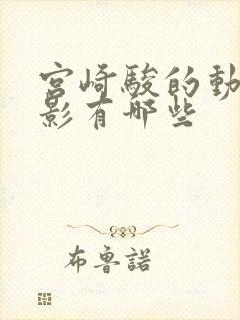 宮崎駿的動
影有哪些
布魯諾